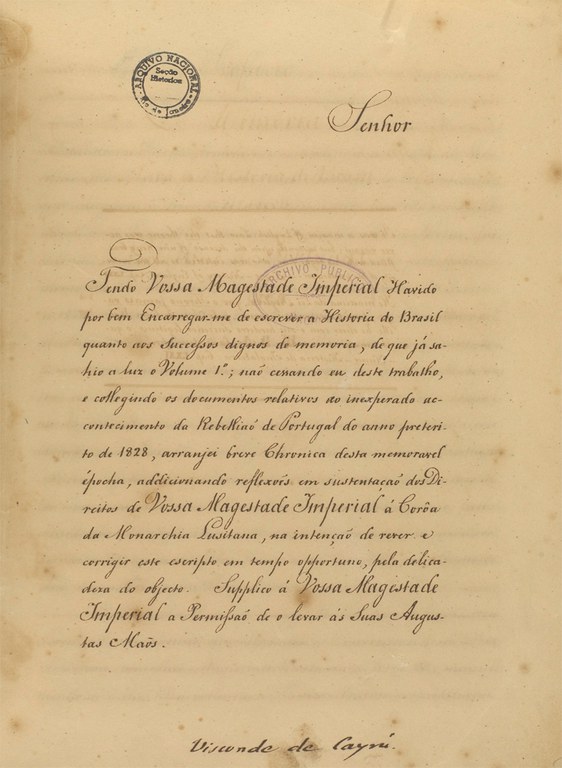 ARQUIVO NACIONAL
Secção
Historica
Rio de Janeiro
Senhor
ARCHIVO PUBLICO
Tendo Vossa Magestade Imperial Havido
por bem Encarregar-me de escrever a Historia do Brasil
quanto aos Successos dignos de memoria, de que já sa-
hio a luz o Volume 1.º; naõ cessando eu deste trabalho,
e colligindo os documentos relativos ao inesperado ac-
contecimento da Rebelliaõ de Portugal do anno preteri-
to de 1828, arranjei breve Chronica desta memoravel
épocha, addicionando reflexoēs em sustentaçaõ dos Di-
reitos de Vossa Magestade Imperial á Corôa
da Monarchia Lusitana, na intençaõ de rever e
corrigir este escripto em tempo opportuno, pela delica-
deza do objecto. Supplico á Vossa Magestade
Imperial a Permissaõ de o levar ás Suas Augus-
tas Maõs.
Visconde de Cayrú.